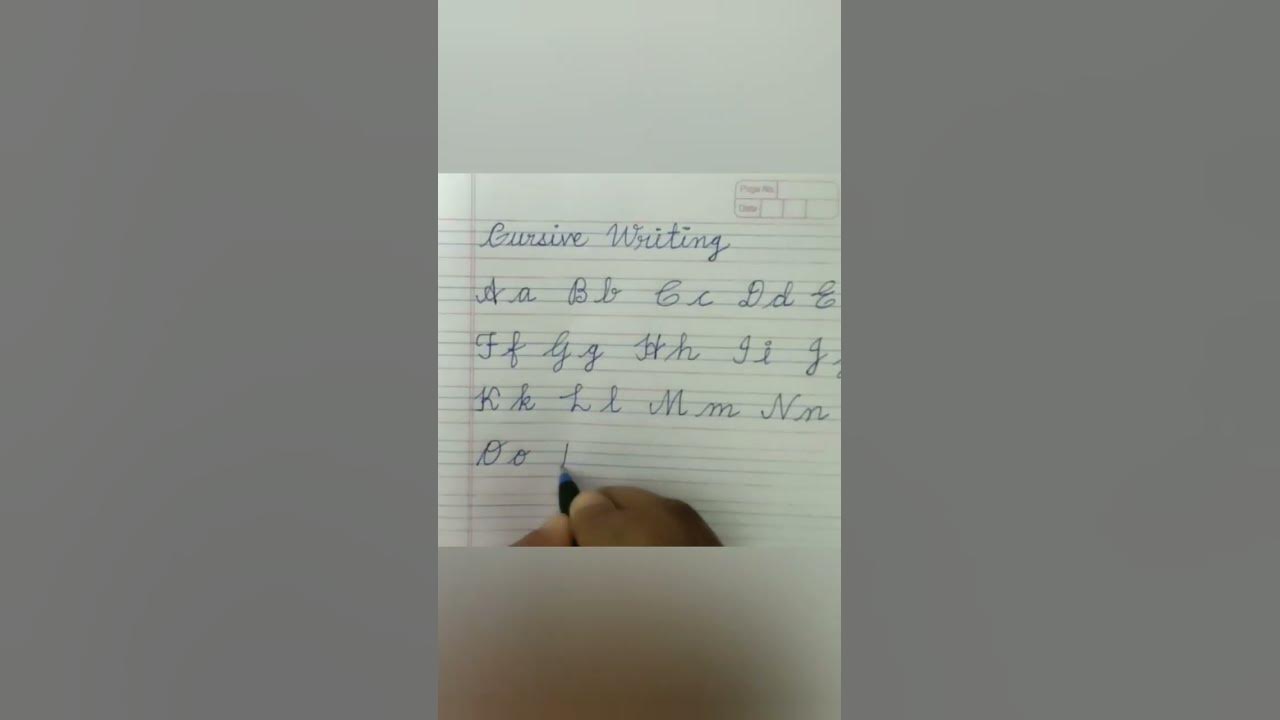 Page No.
Date
Cursive Writing
A a B b C c D d E
F f G g H h I i J j
K k L l M m N n
O o